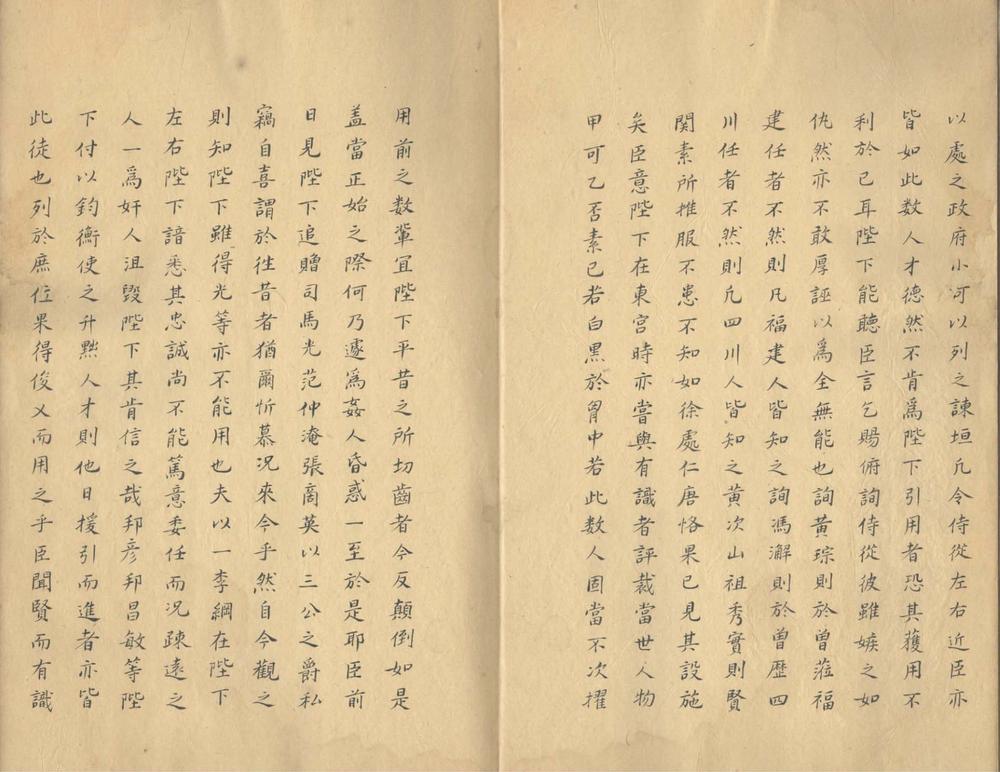 以處之政府小河以列之諫垣凡令侍從左右近臣亦
皆如此数人才德然不肯爲陛下引用者恐其獲用不
利於已耳陛下能聽臣言乞賜俯詢侍從彼雖嫉之如
仇然亦不敢厚誣以爲全無能也詢黃琮則於曾蒞福
建任者不然則凡福建人皆知之詢馮澥則於曾歷四
川任者不然則凡四川人皆知之黃次山祖秀實則賢
関素所推服不患不知如徐處仁唐恪果已見其設施
矣臣意陛下在東宮時亦嘗與有識者評裁當世人物
甲可乙否素已若白黒於胷中若此数人固當不次擢
用前之数輩冝陛下平昔之所切齒者今反顛倒如是
盖當正始之際何乃遽爲姦人昏惑一至於是耶臣前
日見陛下追贈司馬光范仲淹張啇英以三公之爵私
竊自喜謂於徃昔者猶爾忻慕况來今乎然自今觀之
則知陛下雖得光等亦不能用也夫以一李綱在陛下
左右陛下諳悉其忠誠尚不能篤意委任而况踈逺之
人一爲奸人沮毀陛下其肯信之哉邦彦邦昌敏等陛
下付以鈞衡使之升黜人才則他日援引而進者亦皆
此徒也列於庶位果得俊乂而用之乎臣聞賢而有識